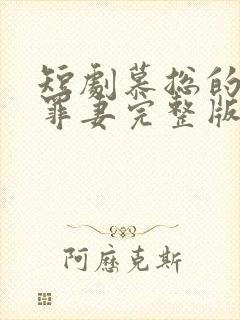 短劇慕总的
罪妻完整版
阿歷克斯